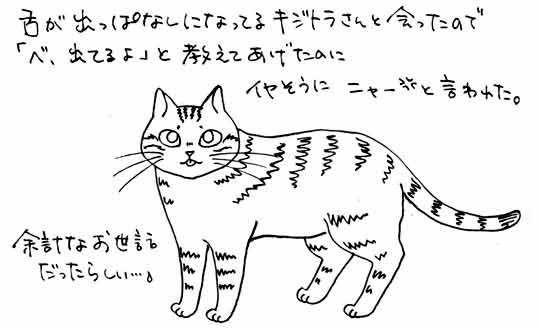 舌が出っぱなしになってるキジトラさんと会ったので
「べ、出てるよ」と教えてあげたのに
イヤそうにニャーッと言われた。
余計なお世話
だったらしい…。